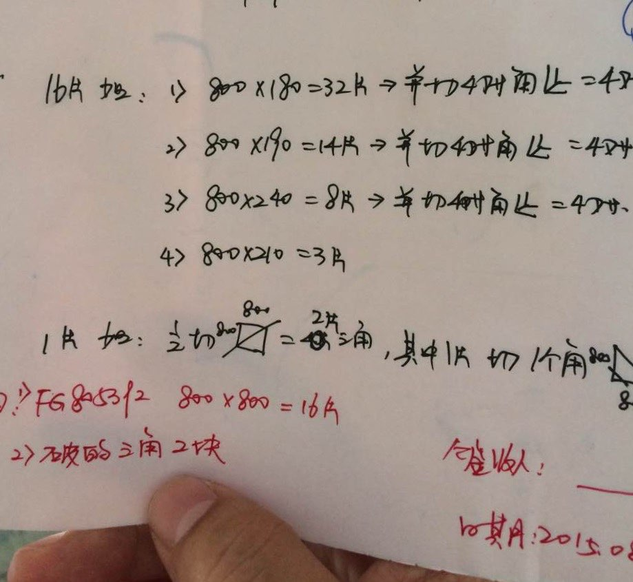 16片切: 1> 800×180=32片→并切4对角 =4对
2> 800×190=14片→并切4对角 =4对
3> 800×240=8片→并切4对角 =4对
4> 800×210=3片
1片切: 1/2切 800 800 = 2片三角,其中1片切1个角 800
1> FG805392 800×800=16片
2>破的三角2块
签收人:
日期:2015.08